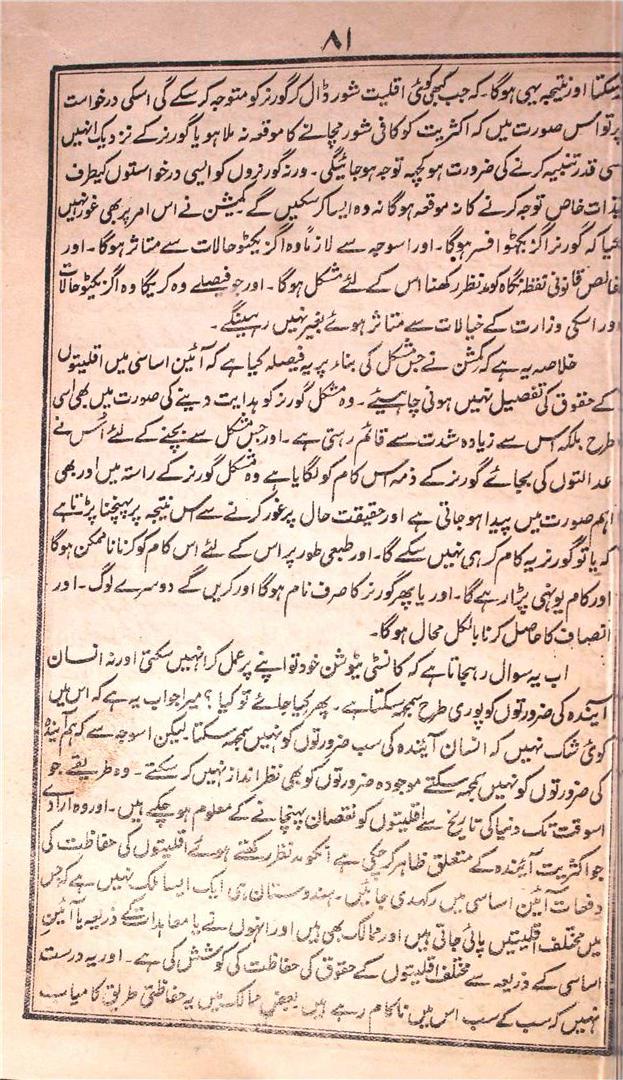 ۸۱
سکتا اور نتیجہ یہی ہوگا۔ کہ جب کبھی کوئی اقلیت شور ڈال کر گورنر کو متوجہ کر سکے گی اسکی درخواست
پر تو اس صورت میں کہ اکثریت کو کافی شور مچانے کا موقعہ نہ ملا ہو یا گورنر کے نزدیک انہیں
کسی قدر تنبیہ کرنے کی ضرورت ہو کچھ توجہ ہو جائیگی۔ ورنہ گورنروں کو ایسی درخواستوں کیطرف
بذات خاص توجہ کرنے کا نہ موقعہ ہوگا نہ وہ ایسا کر سکیں گے۔ کمیشن نے اس امر پر بھی غور نہیں
کیا کہ گورنر اگزیکٹو افسر ہوگا۔ اور اسوجہ سے لازماً وہ اگزیکٹو حالات سے متاثر ہوگا۔ اور
خالص قانونی نقطہ نگاہ کو مدنظر رکھنا اس کے لئے مشکل ہوگا۔ اور جو فیصلے وہ کریگا وہ اگزیکٹو حالات
اور اسکی وزارت کے خیالات سے متاثر ہوئے بغیر نہیں رہینگے۔
خلاصہ یہ ہے کہ کمشن نے جس مشکل کی بناء پر یہ فیصلہ کیا ہے کہ آئین اساسی میں اقلیتوں
کے حقوق کی تفصیل نہیں ہونی چاہیئے۔ وہ مشکل گورنر کو ہدایت دینے کی صورت میں بھی اسی
طرح بلکہ اس سے زیادہ شدت سے قائم رہتی ہے۔ اور جس مشکل سے بچنے کے لئے اُس نے
عدالتوں کی بجائے گورنر کے ذمہ اس کام کو لگایا ہے وہ مشکل گورنر کے راستہ میں اور بھی
اہم صورت میں پیدا ہو جاتی ہے اور حقیقت حال پر غور کرنے سے اس نتیجہ پر پہنچنا پڑتا ہے
کہ یا تو گورنر یہ کام کر ہی نہیں سکے گا۔ اور طبعی طور پر اس کے لئے اس کام کو کرنا ناممکن ہوگا
اور کام یونہی پڑا رہے گا۔ اور یا پھر گورنر کا صرف نام ہوگا اور کریں گے دوسرے لوگ۔ اور
انصاف کا حاصل کرنا بالکل محال ہوگا۔
اب یہ سوال رہجاتا ہے کہ کانسٹی ٹیوشن خود تو اپنے پر عمل کرا نہیں سکتی اور نہ انسان
آیندہ کی ضرورتوں کو پوری طرح سمجھ سکتا ہے۔ پھر کیا جائے تو کیا؟ میرا جواب یہ ہے کہ اس میں
کوئی شک نہیں کہ انسان آیندہ کی سب ضرورتوں کو نہیں سمجھ سکتا۔ لیکن اسوجہ سے کہ ہم آیندہ
کی ضرورتوں کو نہیں سمجھ سکتے موجودہ ضرورتوں کو بھی نظر انداز نہیں کر سکتے۔ وہ طریقے جو
اسوقت تک دنیا کی تاریخ سے اقلیتوں کو نقصان پہنچانے کے معلوم ہو چکے ہیں۔ اور وہ ارادے
جو اکثریت آیندہ کے متعلق ظاہر کر چکی ہے انکو مدنظر رکھتے ہوئے اقلیتوں کی حفاظت کی
دفعات آئین اساسی میں رکھدی جائیں۔ ہندوستان ہی ایک ایسا ملک نہیں ہے کہ جس
میں مختلف اقلیتیں پائی جاتی ہیں اور ممالک بھی ہیں اور انہوں نے یا معاہدات کے ذریعہ یا آئین
اساسی کے ذریعہ سے مختلف اقلیتوں کے حقوق کی حفاظت کی کوشش کی ہے۔ اور یہ درست
نہیں کہ سب کے سب اس میں ناکام رہے ہیں بعض ممالک میں یہ حفاظتی طریق کامیاب